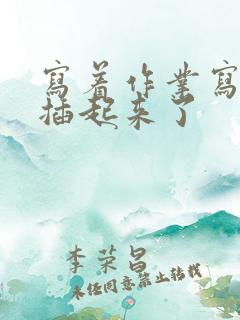 寫着作業寫
插起来了
李荣昌
未经同意禁止转载